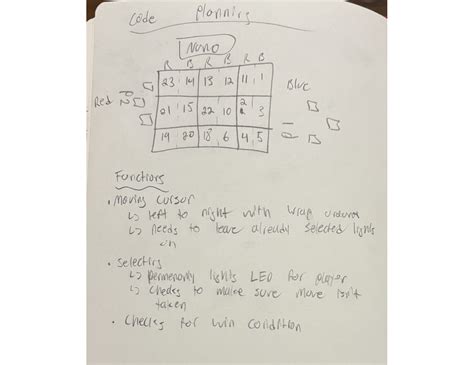 Code Planning
Nano
R B R B R B
23 14 13 12 11 1
Red P2 21 15 22 10 2 3 Blue P1
19 20 18 6 4 5
Functions
• Moving cursor
↳ left to right with wrap around
↳ needs to leave already selected lights on
• Selecting
↳ permenontly lights LED for player
↳ Checks to make sure move isn't taken
• Checks for win condition